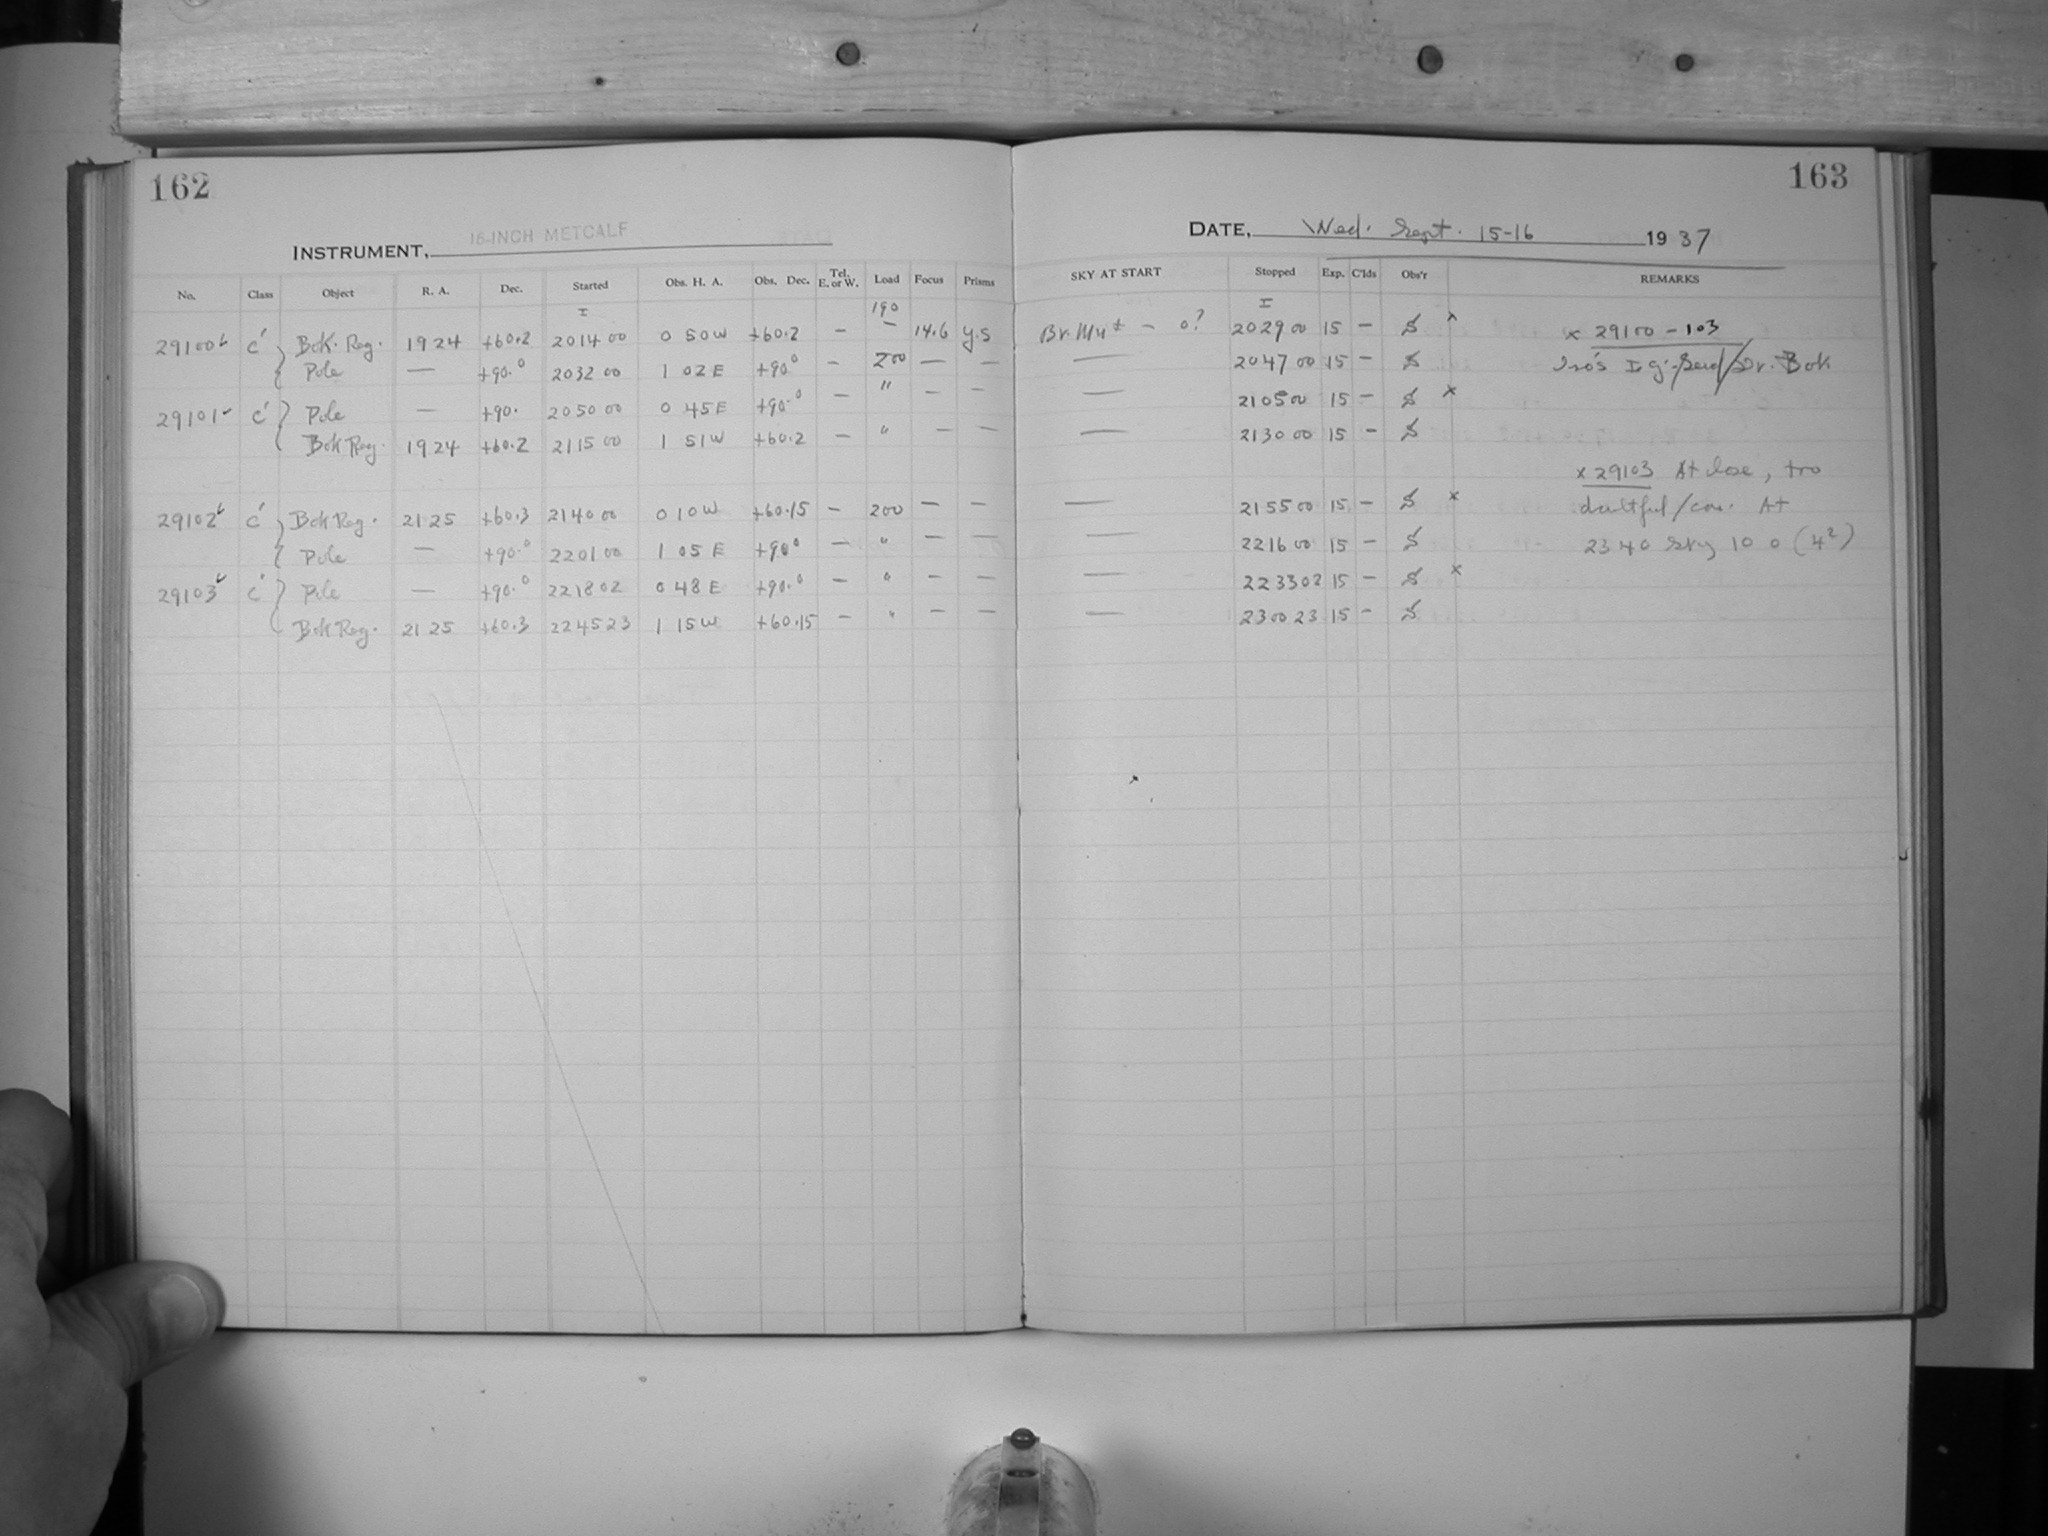 162
INSTRUMENT, 16-INCH METCALF
No. Class Object R. A. Dec. Started Obs. H. A. Obs. Dec. Tel. E. or W. Load Focus Prisms
I 190
29100 c' Bok. Reg. 19 24 +60.2 20 14 00 0 50 W +60.2 — — 14.6 y.s
Pole — +90.° 20 32 00 1 02 E +90° — 200 — —
29101 c' Pole — +90. 20 50 00 0 45 E +90.° — " — —
Bok Reg. 19 24 +60.2 21 15 00 1 51 W +60.2 — " — —
29102 c' Bok Reg. 21 25 +60.3 21 40 00 0 10 W +60.15 — 200 — —
Pole — +90.° 22 01 00 1 05 E +90° — " — —
29103 c' Pole — +90.° 22 18 02 0 48 E +90.° — " — —
Bok Reg. 21 25 +60.3 22 45 23 1 15 W +60.15 — " — —
163
DATE, Wed. Sept. 15-16 1937
SKY AT START Stopped Exp. C'lds Obs'r REMARKS
I
— 0? 20 29 00 15 — S x x 29100 - 103
— 20 47 00 15 — S I g. Dr. Bok
— 21 05 00 15 — S x
— 21 30 00 15 — S
x 29103 At close, too
— 21 55 00 15 — S x doubtful / con. At
— 22 16 00 15 — S 23 40 sky 10 0 (4²)
— 22 33 02 15 — S x
— 23 00 23 15 — S